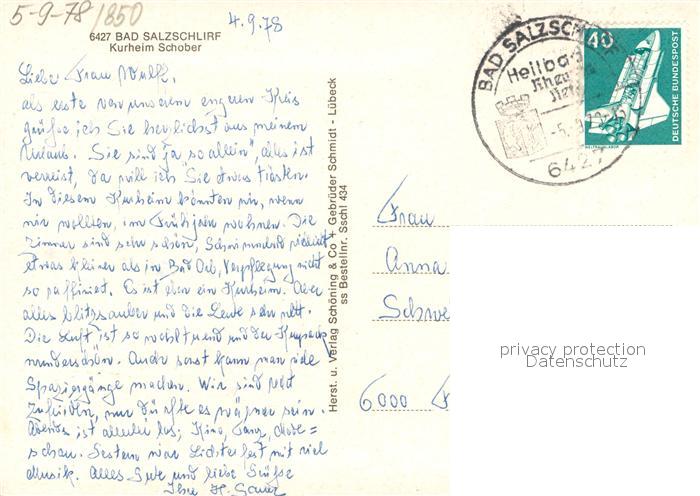 5-9-78/850
4.9.78
6427 BAD SALZSCHLIRF
Kurheim Schober
Liebe Frau Wulff,
als erste von unserem engeren Kreis
grüße ich Sie herzlichst aus meinem
Urlaub. "Sie sind ja so allein", alles ist
verreist, da will ich Sie etwas trösten.
In diesem Kurheim könnten wir, wenn
wir wollten, im Frühjahr wohnen. Die
Zimmer sind sehr schön, Schwimmbad vielleicht
etwas kleiner als in Bad Orb, Verpflegung nicht
so raffiniert. Es ist eben ein Kurheim. Aber
alles blitzsauber und die Leute sehr nett.
Die Luft ist so wohltuend und der Kurpark
wunderschön. Auch sonst kann man viele
Spaziergänge machen. Wir sind recht
zufrieden, nur dürfte es wärmer sein.
Abends ist allerlei los; Kino, Tanz, Mode=
schau. Gestern war Lichterfest mit viel
Musik. Alles Gute und liebe Grüße
Ihre H.
Herst. u. Verlag Schöning & Co + Gebrüder Schmidt - Lübeck
ss Bestellnr. Sschl 434
BAD SALZSCH
Heilbad
6427
40
DEUTSCHE BUNDESPOST
WELTRAUMLABOR
Frau
Anna
Schwe
6000
privacy protection
Datenschutz